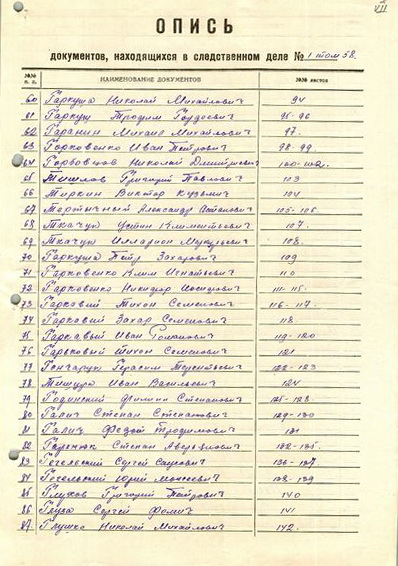 VII
ОПИСЬ
документов, находящихся в следственном деле № 1 том 58.
№№ п. п. НАИМЕНОВАНИЕ ДОКУМЕНТОВ №№ листов
60 Гаркуша Николай Михайлович 94
61 Гаркуш Трофим Гордеевич 95-96
62 Гаранин Михаил Михайлович 97.
63 Горковенко Иван Петрович 98-99.
64 Горбовцов Николай Дмитриевич 100-102.
65 Тишлов Григорий Павлович 103
66 Тиркин Виктор Кузьмич 104
67 Тертычный Александр 105-106.
68 Ткачук Устин Климентьевич 107.
69 Ткачук Илларион 108.
70 Гаркуша Петр Захарович 109
71 Гарковенко Клим Игнатьевич 110
72 Гарковенко Никифор Иосифович 111-115.
73 Гаркавий Тихон Семенович 116-117.
74 Гарковий Захар Семенович 118
75 Гаркавый Иван Романович 119-120
76 Гарьковый Тихон Семенович 121
77 Гончарук Герасим Терентьевич 122-123
78 Тишура Иван Васильевич 124
79 Годинский Степанович 125-128
80 Галич Степан Степанович 129-130
81 Галич Федор Трофимович 131
82 Степан Аверьянович 132-135.
83 Гогельский Сергей 136-137
84 Гогельский Юрий Моисеевич 138-139
85 Глухов Григорий Петрович 140
86 Глуза Сергей Фомич 141
87 Глушко Николай Михайлович 142.